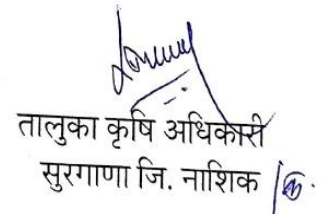 तालुका कृषि अधिकारी
सुरगाणा जि. नाशिक